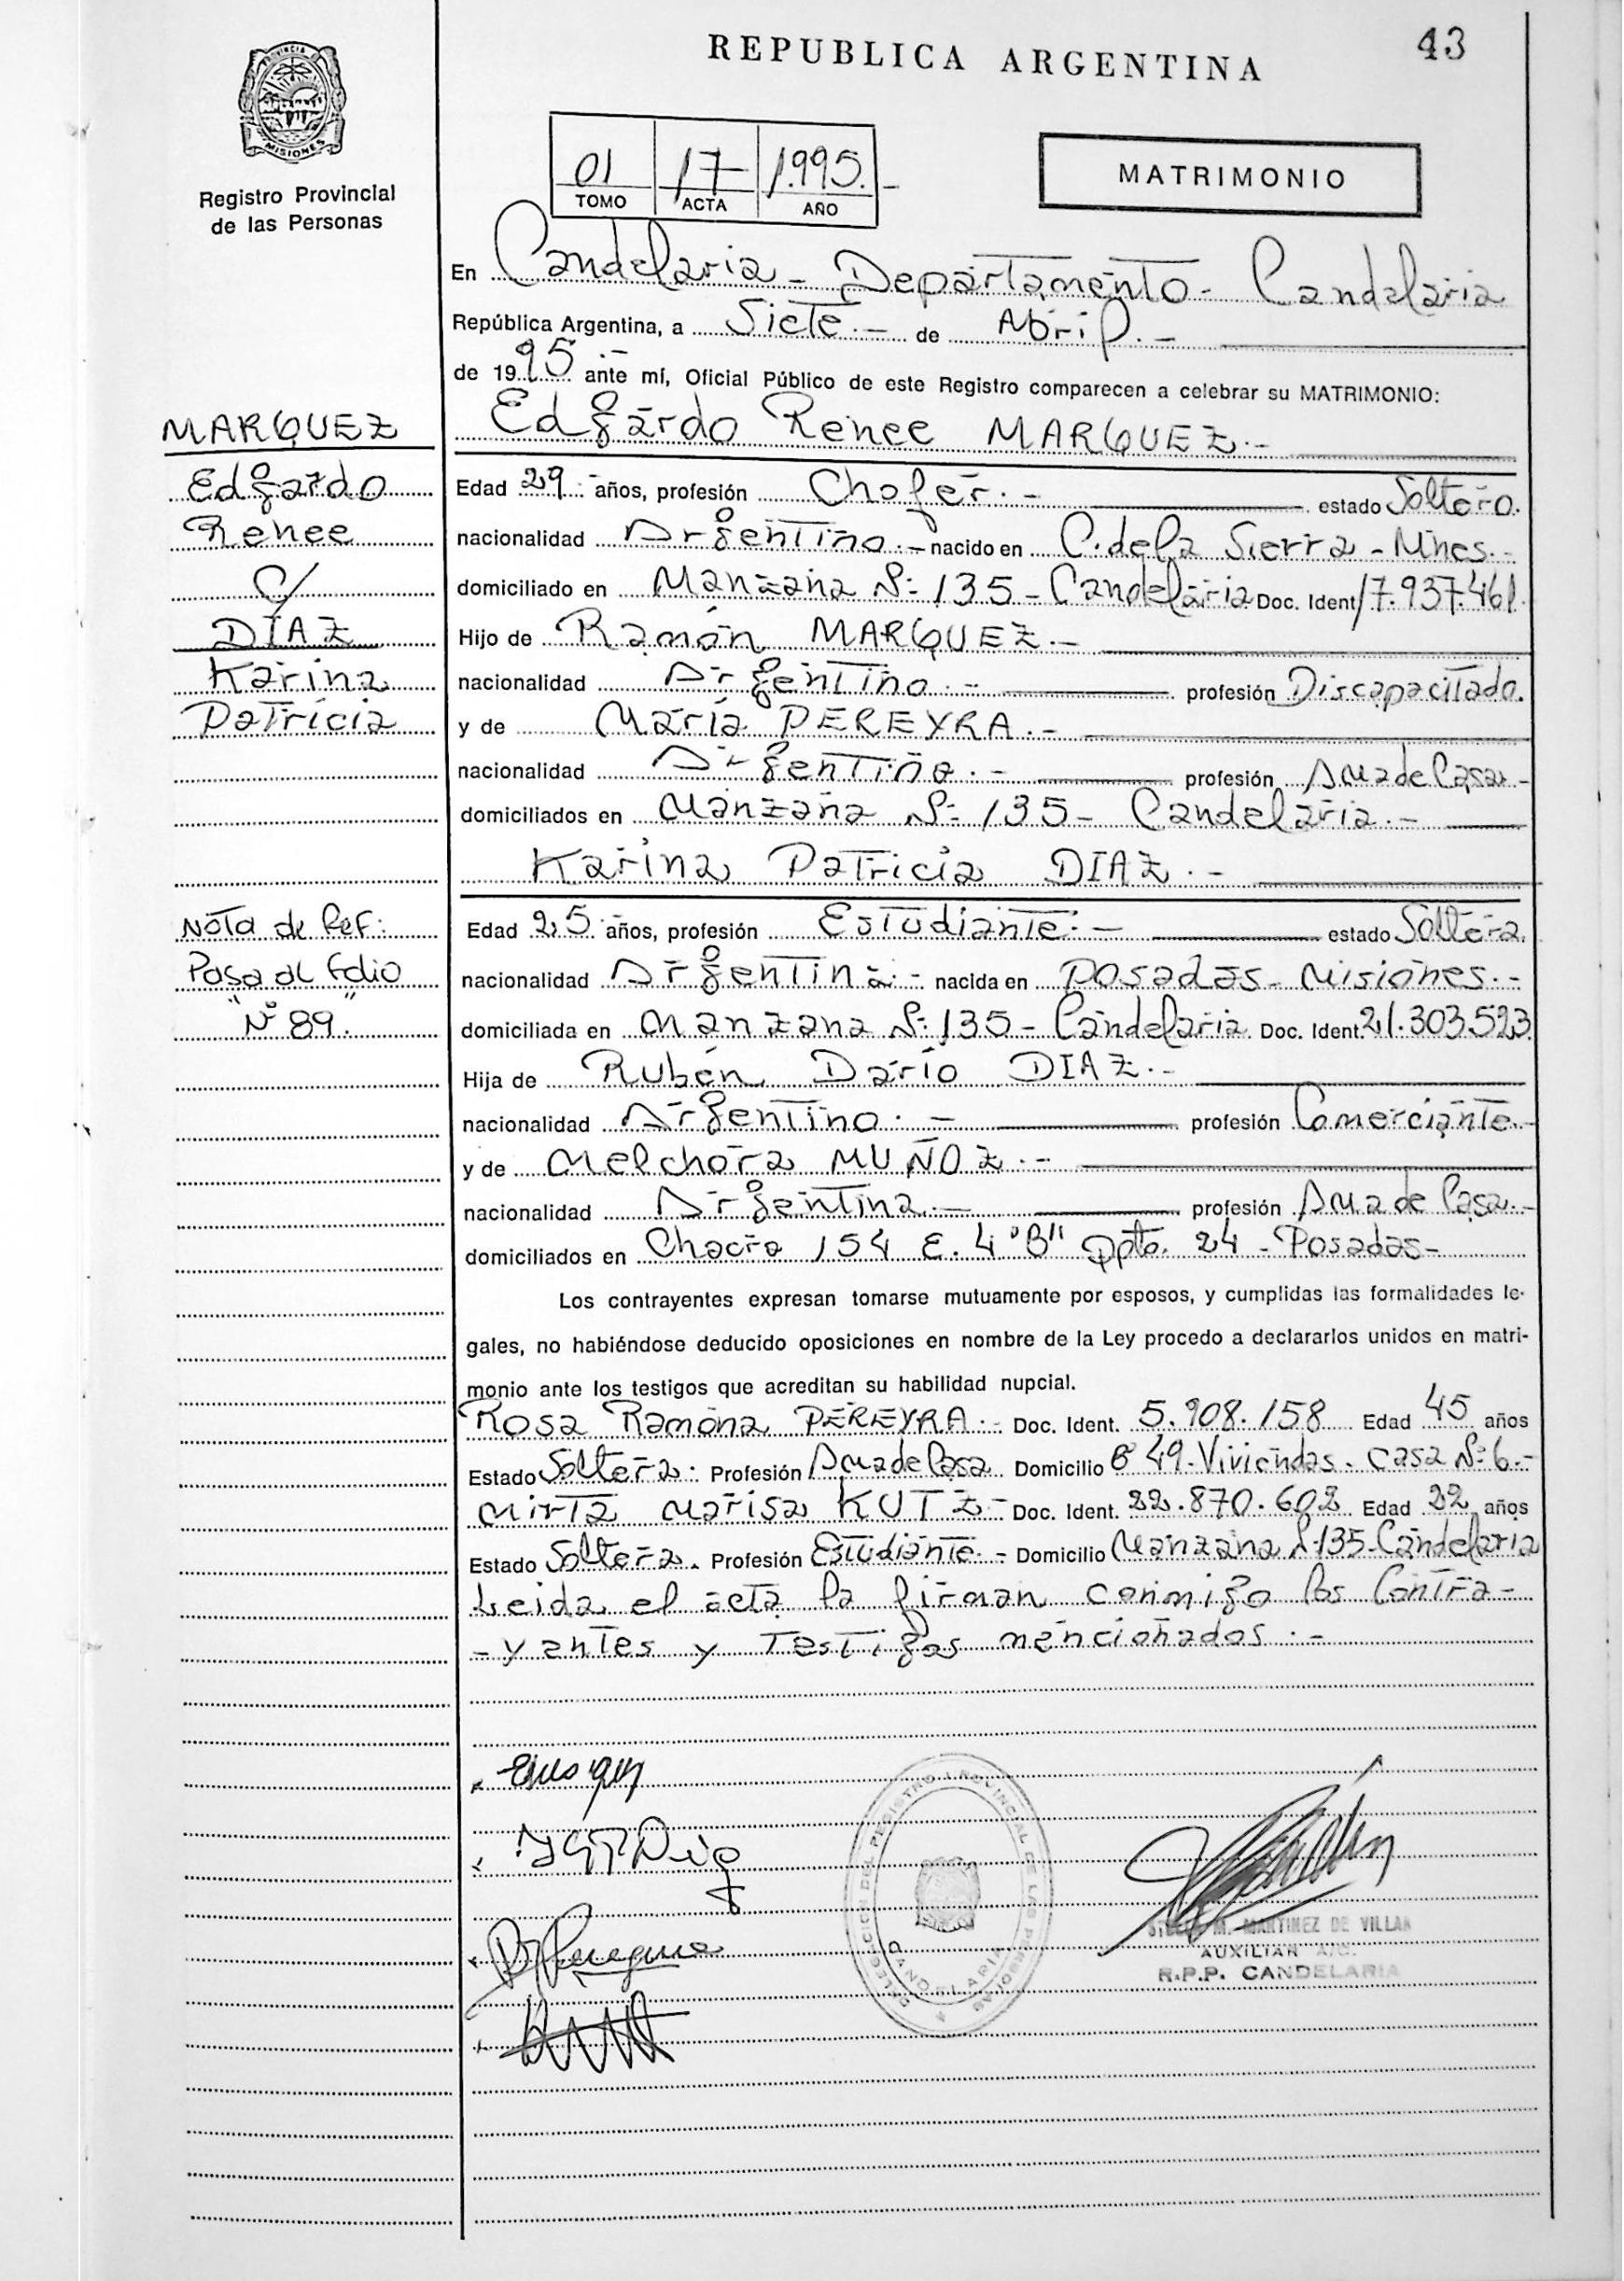 REPUBLICA ARGENTINA
43
PROVINCIA
MISIONES
Registro Provincial
de las Personas
01 17 1.995.-
TOMO ACTA AÑO
MATRIMONIO
En Candelaria - Departamento - Candelaria
República Argentina, a Siete.- de Abril.-
de 1995.- ante mí, Oficial Público de este Registro comparecen a celebrar su MATRIMONIO:
Edgardo Renee MARQUEZ.-
MARQUEZ
Edgardo
Renee
C/
DIAZ
Karina
Patricia
Edad 29.- años, profesión Chofer.- estado Soltero.
nacionalidad Argentino.- nacido en C. de la Sierra - Mnes.-
domiciliado en Manzana Nº 135 - Candelaria Doc. Ident 17.937.461.
Hijo de Ramón MARQUEZ.-
nacionalidad Argentino.- profesión Discapacitado.
y de María PEREYRA.-
nacionalidad Argentina.- profesión Ama de Casa.-
domiciliados en Manzana Nº 135 - Candelaria.-
Karina Patricia DIAZ.-
Nota de Ref:
Pasa al folio
"Nº 89."
Edad 25.- años, profesión Estudiante.- estado Soltera.
nacionalidad Argentina.- nacida en Posadas - Misiones.-
domiciliada en Manzana Nº 135 - Candelaria. Doc. Ident. 21.303.523.
Hija de Rubén Darío DIAZ.-
nacionalidad Argentino.- profesión Comerciante.-
y de Melchora MUÑOZ.-
nacionalidad Argentina.- profesión Ama de Casa.-
domiciliados en Chacra 154 E. 4 "B" Dpto. 24 - Posadas-
Los contrayentes expresan tomarse mutuamente por esposos, y cumplidas las formalidades le-
gales, no habiéndose deducido oposiciones en nombre de la Ley procedo a declararlos unidos en matri-
monio ante los testigos que acreditan su habilidad nupcial.
Rosa Ramona PEREYRA.- Doc. Ident. 5.908.158 Edad 45 años
Estado Soltera. Profesión Ama de Casa Domicilio Bº 49 - Viviendas - Casa Nº 6.-
Mirta Marisa KUTZ- Doc. Ident. 22.870.602 Edad 22 años
Estado Soltera. Profesión Estudiante.- Domicilio Manzana Nº 135 - Candelaria
Leida el acta la firman conmigo los Contra-
-yentes y Testigos mencionados.-
DELEGACION DEL REGISTRO PROVINCIAL DE LAS PERSONAS
CANDELARIA
M. MARTINEZ DE VILLAR
AUXILIAR A/C.
R.P.P. CANDELARIA